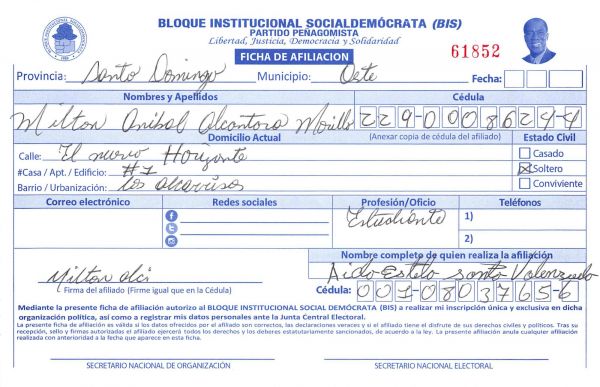 BLOQUE INSTITUCIONAL SOCIALDEMÓCRATA (BIS)
PARTIDO PEÑAGOMISTA
Libertad, Justicia, Democracia y Solidaridad
FICHA DE AFILIACION
61852
Provincia: Santo Domingo Municipio: Oeste Fecha:
Nombres y Apellidos Cédula
Milton Anibal Alcantara Morillo 229-0008624-4
Domicilio Actual (Anexar copia de cédula del afiliado) Estado Civil
Calle: El nuevo Horizonte Casado
#Casa / Apt. / Edificio: #1 Soltero
Barrio / Urbanización: los alcarrisos Conviviente
Correo electrónico Redes sociales Profesión/Oficio Teléfonos
Estudiante 1)
2)
Nombre completo de quien realiza la afiliación
Milton alc Aida Estela Santo Valenzuela
Firma del afiliado (Firme igual que en la Cédula) Cédula: 001-0803765-6
Mediante la presente ficha de afiliación autorizo al BLOQUE INSTITUCIONAL SOCIAL DEMÓCRATA (BIS) a realizar mi inscripción única y exclusiva en dicha
organización política, así como a registrar mis datos personales ante la Junta Central Electoral.
La presente ficha de afiliación es válida si los datos ofrecidos por el afiliado son correctos, las declaraciones veraces y si el afiliado tiene el disfrute de sus derechos civiles y políticos. Tras su
recepción, sello y firmas autorizadas el afiliado ejercerá todos los derechos y los deberes estatutariamente sancionados, de acuerdo a la ley. La presente afiliación anula cualquier afiliación
realizada con anterioridad a la fecha que aparece en esta ficha.
SECRETARIO NACIONAL DE ORGANIZACIÓN SECRETARIO NACIONAL ELECTORAL